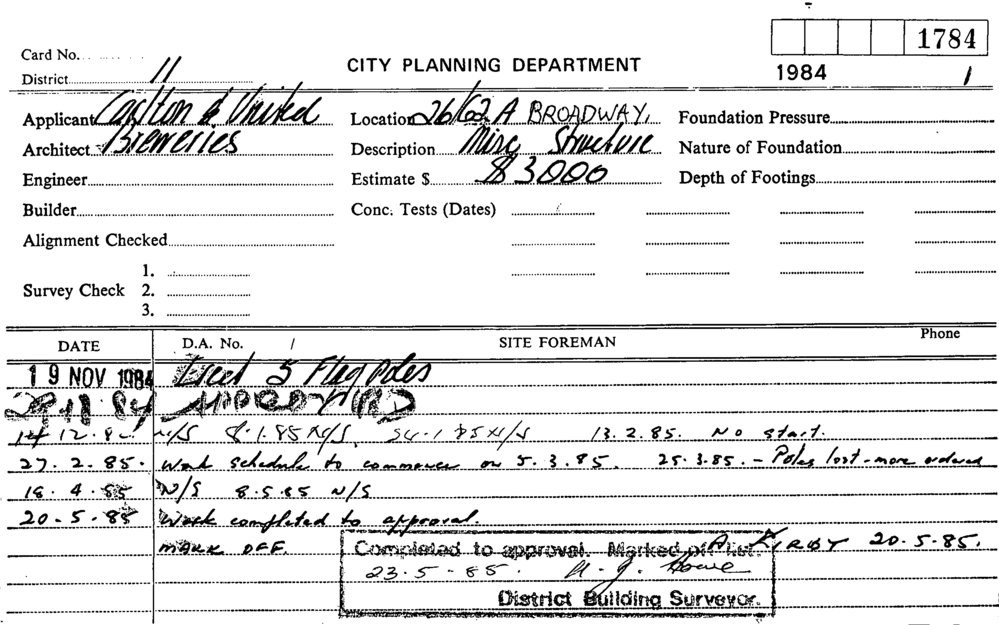 1784
Card No.
CITY PLANNING DEPARTMENT
1984 1
District 11
Applicant Carlton & United
Location 26/62A BROADWAY,
Foundation Pressure
Architect Breweries
Description Misc Structure
Nature of Foundation
Engineer
Estimate $ $3000
Depth of Footings
Builder
Conc. Tests (Dates)
Alignment Checked
1.
Survey Check 2.
3.
DATE D.A. No. / SITE FOREMAN Phone
19 NOV 1984 Erect 5 Flag Poles
84 APPROVED
14 12.84 N/S 8.1.85 N/S. 24.1 85 N/S 13.2.85. No start.
27.2.85. Work schedule to commence on 5.3.85. 25.3.85. - Poles lost - more ordered
18.4.85 N/S 8.5.85 N/S
20-5-85 Work completed to approval.
MARK OFF. A. KIRBY 20.5.85.
Completed to approval. Marked off list.
23.5-85.
District Building Surveyor.